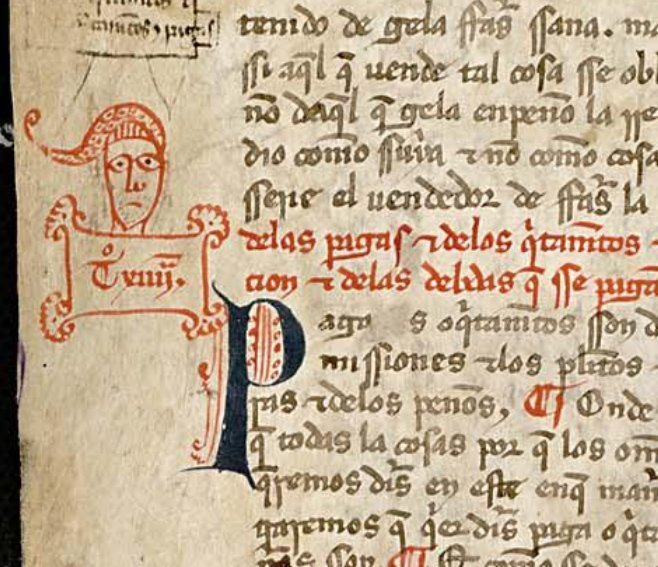 qtamitos z pagas
tenido de gela ffas̃ ssana. ma
ssi aq̃l q̃ uende tal cosa sse obl
nõ daq̃l q̃ gela enpeño la rre
dio como ssuya ⁊ nõ como cosa
sserie el uendedor de ffas̃ la
delas pagas ⁊ delos q̃tamĩtos
cion ⁊ delas debdas q̃ sse paga
Tº xiiii.
Pago s o q̃tamĩtos sson d
missiones ⁊ los plitos
ras ⁊ delos penos, ¶ Onde
q̃ todas la cosas por q̃ los om
q̃remos dis̃ en este enq̃ man
garemos q̃ q̃er dis̃ paga o q̃ta